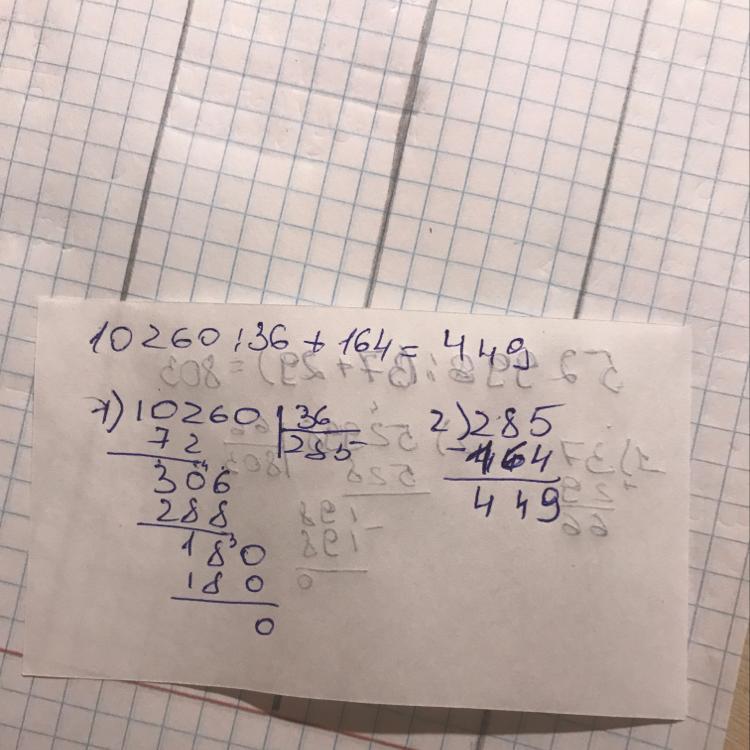 10260 : 36 + 164 = 449
1) 10260 | 36
72 285
306
288
180
180
0
2) 285
- 164
449